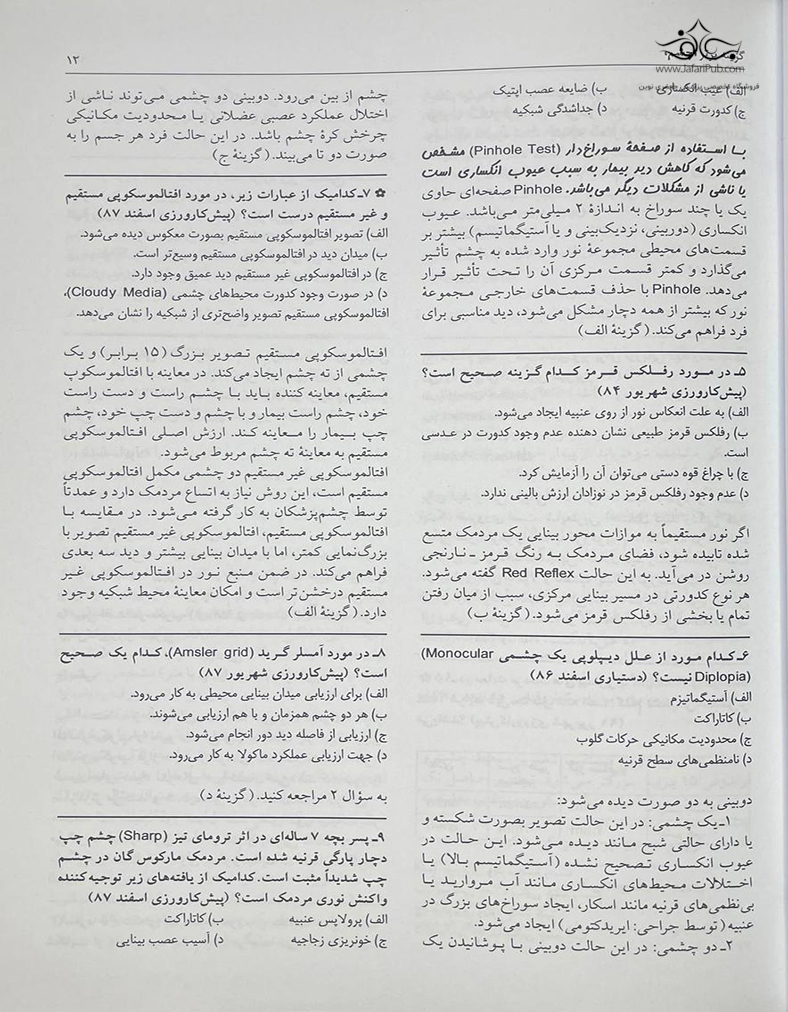 ۱۲
www.JafariPub.com
الف) عیب انکساری
ب) ضایعه عصب اپتیک
ج) کدورت قرنیه
د) جداشدگی شبکیه
بـا اسـتفاده از صفحهٔ سوراخ‌دار (Pinhole Test) مشخص
می‌شود که کاهش دید بیمار به سبب عیوب انکساری است
یا ناشی از مشکلات دیگر می‌باشد. Pinhole صفحه‌ای حاوی
یک یا چند سوراخ به اندازهٔ ۲ میلی‌متر می‌باشد. عیوب
انکساری (دوربینی، نزدیک‌بینی و یا آستیگماتیسم) بیشتر بر
قسمت‌های محیطی مجموعهٔ نور وارد شده به چشم تأثیر
می‌گذارد و کمتر قسمت مرکزی آن را تحت تأثیر قرار
می‌دهد. Pinhole با حذف قسمت‌های خارجی مجموعهٔ
نور که بیشتر از همه دچار مشکل می‌شود، دید مناسبی برای
فرد فراهم می‌کند. (گزینهٔ الف)
۵ـ در مورد رفلکس قرمز کدام گزینه صحیح است؟
(پیش‌کارورزی شهریور ۸۴)
الف) به علت انعکاس نور از روی عنبیه ایجاد می‌شود.
ب) رفلکس قرمز طبیعی نشان دهنده عدم وجود کدورت در عدسی
است.
ج) با چراغ قوه دستی می‌توان آن را آزمایش کرد.
د) عدم وجود رفلکس قرمز در نوزادان ارزش بالینی ندارد.
اگر نور مستقیماً به موازات محور بینایی یک مردمک متسع
شده تابیده شود، فضای مردمک به رنگ قرمز ـ نارنجی
روشن در می‌آید. به این حالت Red Reflex گفته می‌شود.
هر نوع کدورتی در مسیر بینایی مرکزی، سبب از میان رفتن
تمام یا بخشی از رفلکس قرمز می‌شود. (گزینهٔ ب)
۶ـ کدام مورد از علل دیپلوپی یک چشمی (Monocular
Diplopia) نیست؟ (دستیاری اسفند ۸۶)
الف) آستیگماتیزم
ب) کاتاراکت
ج) محدودیت مکانیکی حرکات گلوب
د) نامنظمی‌های سطح قرنیه
دوبینی به دو صورت دیده می‌شود:
۱ـ یک چشمی: در این حالت تصویر بصورت شکسته و
یا دارای حالتی شبح مانند دیده می‌شود. این حالت در
عیوب انکساری تصحیح نشده (آستیگماتیسم بالا) یا
اختلالات محیط‌های انکساری مانند آب مروارید یا
بی‌نظمی‌های قرنیه مانند اسکار، ایجاد سوراخ‌های بزرگ در
عنبیه (توسط جراحی: ایریدکتومی) ایجاد می‌شود.
۲ـ دو چشمی: در این حالت دوبینی با پوشانیدن یک
چشم از بین می‌رود. دوبینی دو چشمی می‌تواند ناشی از
اختلال عملکرد عصبی عضلانی یا محدودیت مکانیکی
چرخش کرهٔ چشم باشد. در این حالت فرد هر جسم را به
صورت دو تا می‌بیند. (گزینهٔ ج)
✿ ۷ـ کدامیک از عبارات زیر، در مورد افتالموسکوپی مستقیم
و غیر مستقیم درست است؟ (پیش‌کارورزی اسفند ۸۷)
الف) تصویر افتالموسکوپی مستقیم بصورت معکوس دیده می‌شود.
ب) میدان دید در افتالموسکوپی مستقیم وسیع‌تر است.
ج) در افتالموسکوپی غیر مستقیم دید عمیق وجود دارد.
د) در صورت وجود کدورت محیط‌های چشمی (Cloudy Media)،
افتالموسکوپی مستقیم تصویر واضح‌تری از شبکیه را نشان می‌دهد.
افتالموسکوپی مستقیم تصویر بزرگ (۱۵ برابر) و یک
چشمی از ته چشم ایجاد می‌کند. در معاینه با افتالموسکوپ
مستقیم، معاینه کننده باید با چشم راست و دست راست
خود، چشم راست بیمار و با چشم و دست چپ خود، چشم
چپ بیمار را معاینه کند. ارزش اصلی افتالموسکوپی
مستقیم به معاینهٔ ته چشم مربوط می‌شود.
افتالموسکوپی غیر مستقیم دو چشمی مکمل افتالموسکوپی
مستقیم است، این روش نیاز به اتساع مردمک دارد و عمدتاً
توسط چشم‌پزشکان به کار گرفته می‌شود. در مقایسه با
افتالموسکوپی مستقیم، افتالموسکوپی غیر مستقیم تصویر با
بزرگ‌نمایی کمتر، اما با میدان بینایی بیشتر و دید سه بعدی
فراهم می‌کند. در ضمن منبع نور در افتالموسکوپی غیر
مستقیم درخشن‌تر است و امکان معاینهٔ محیط شبکیه وجود
دارد. (گزینهٔ الف)
۸ـ در مورد آمسلر گرید (Amsler grid)، کدام یک صحیح
است؟ (پیش‌کارورزی شهریور ۸۷)
الف) برای ارزیابی میدان بینایی محیطی به کار می‌رود.
ب) هر دو چشم همزمان و با هم ارزیابی می‌شوند.
ج) ارزیابی از فاصله دید دور انجام می‌شود.
د) جهت ارزیابی عملکرد ماکولا به کار می‌رود.
به سؤال ۲ مراجعه کنید. (گزینهٔ د)
۹ـ پسر بچه ۷ ساله‌ای در اثر ترومای تیز (Sharp) چشم چپ
دچار پارگی قرنیه شده است. مردمک مارکوس گان در چشم
چپ شدیداً مثبت است. کدامیک از یافته‌های زیر توجیه‌کننده
واکنش نوری مردمک است؟ (پیش‌کارورزی اسفند ۸۷)
الف) پرولاپس عنبیه
ب) کاتاراکت
ج) خونریزی زجاجیه
د) آسیب عصب بینایی